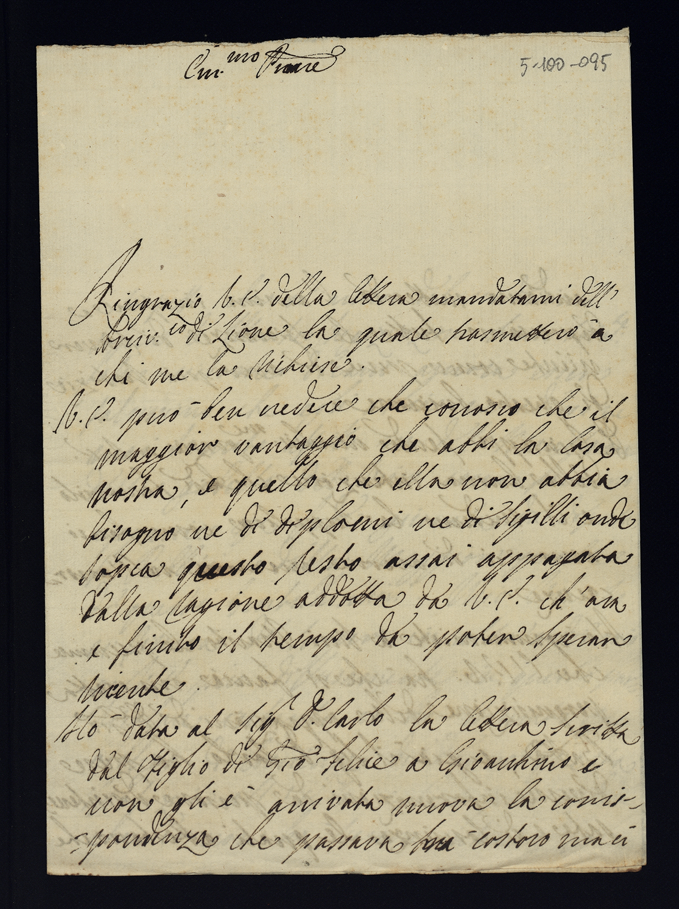 5-100-095
Car.mo Padre
Ringrazio V. P. della lettera mandatami dell'
di Lione la quale trasmetterò a
chi me la richiese.
V. P. può ben vedere che conosco che il
maggior vantaggio che abbi la Casa
nostra, è quello che ella non abbia
bisogno ne di diplomi ne di sigilli onde
sopra questo resto assai appagata
dalla ragione addotta da V. P. ch ora
e finito il tempo da poter sperar
niente.
Ho data al Sig.r D. Carlo la lettera scritta
dal Figlio di Gio Felice a Gioachino e
non gli è arrivata nuova la corris-
-pondenza che passava tra costoro ma ci